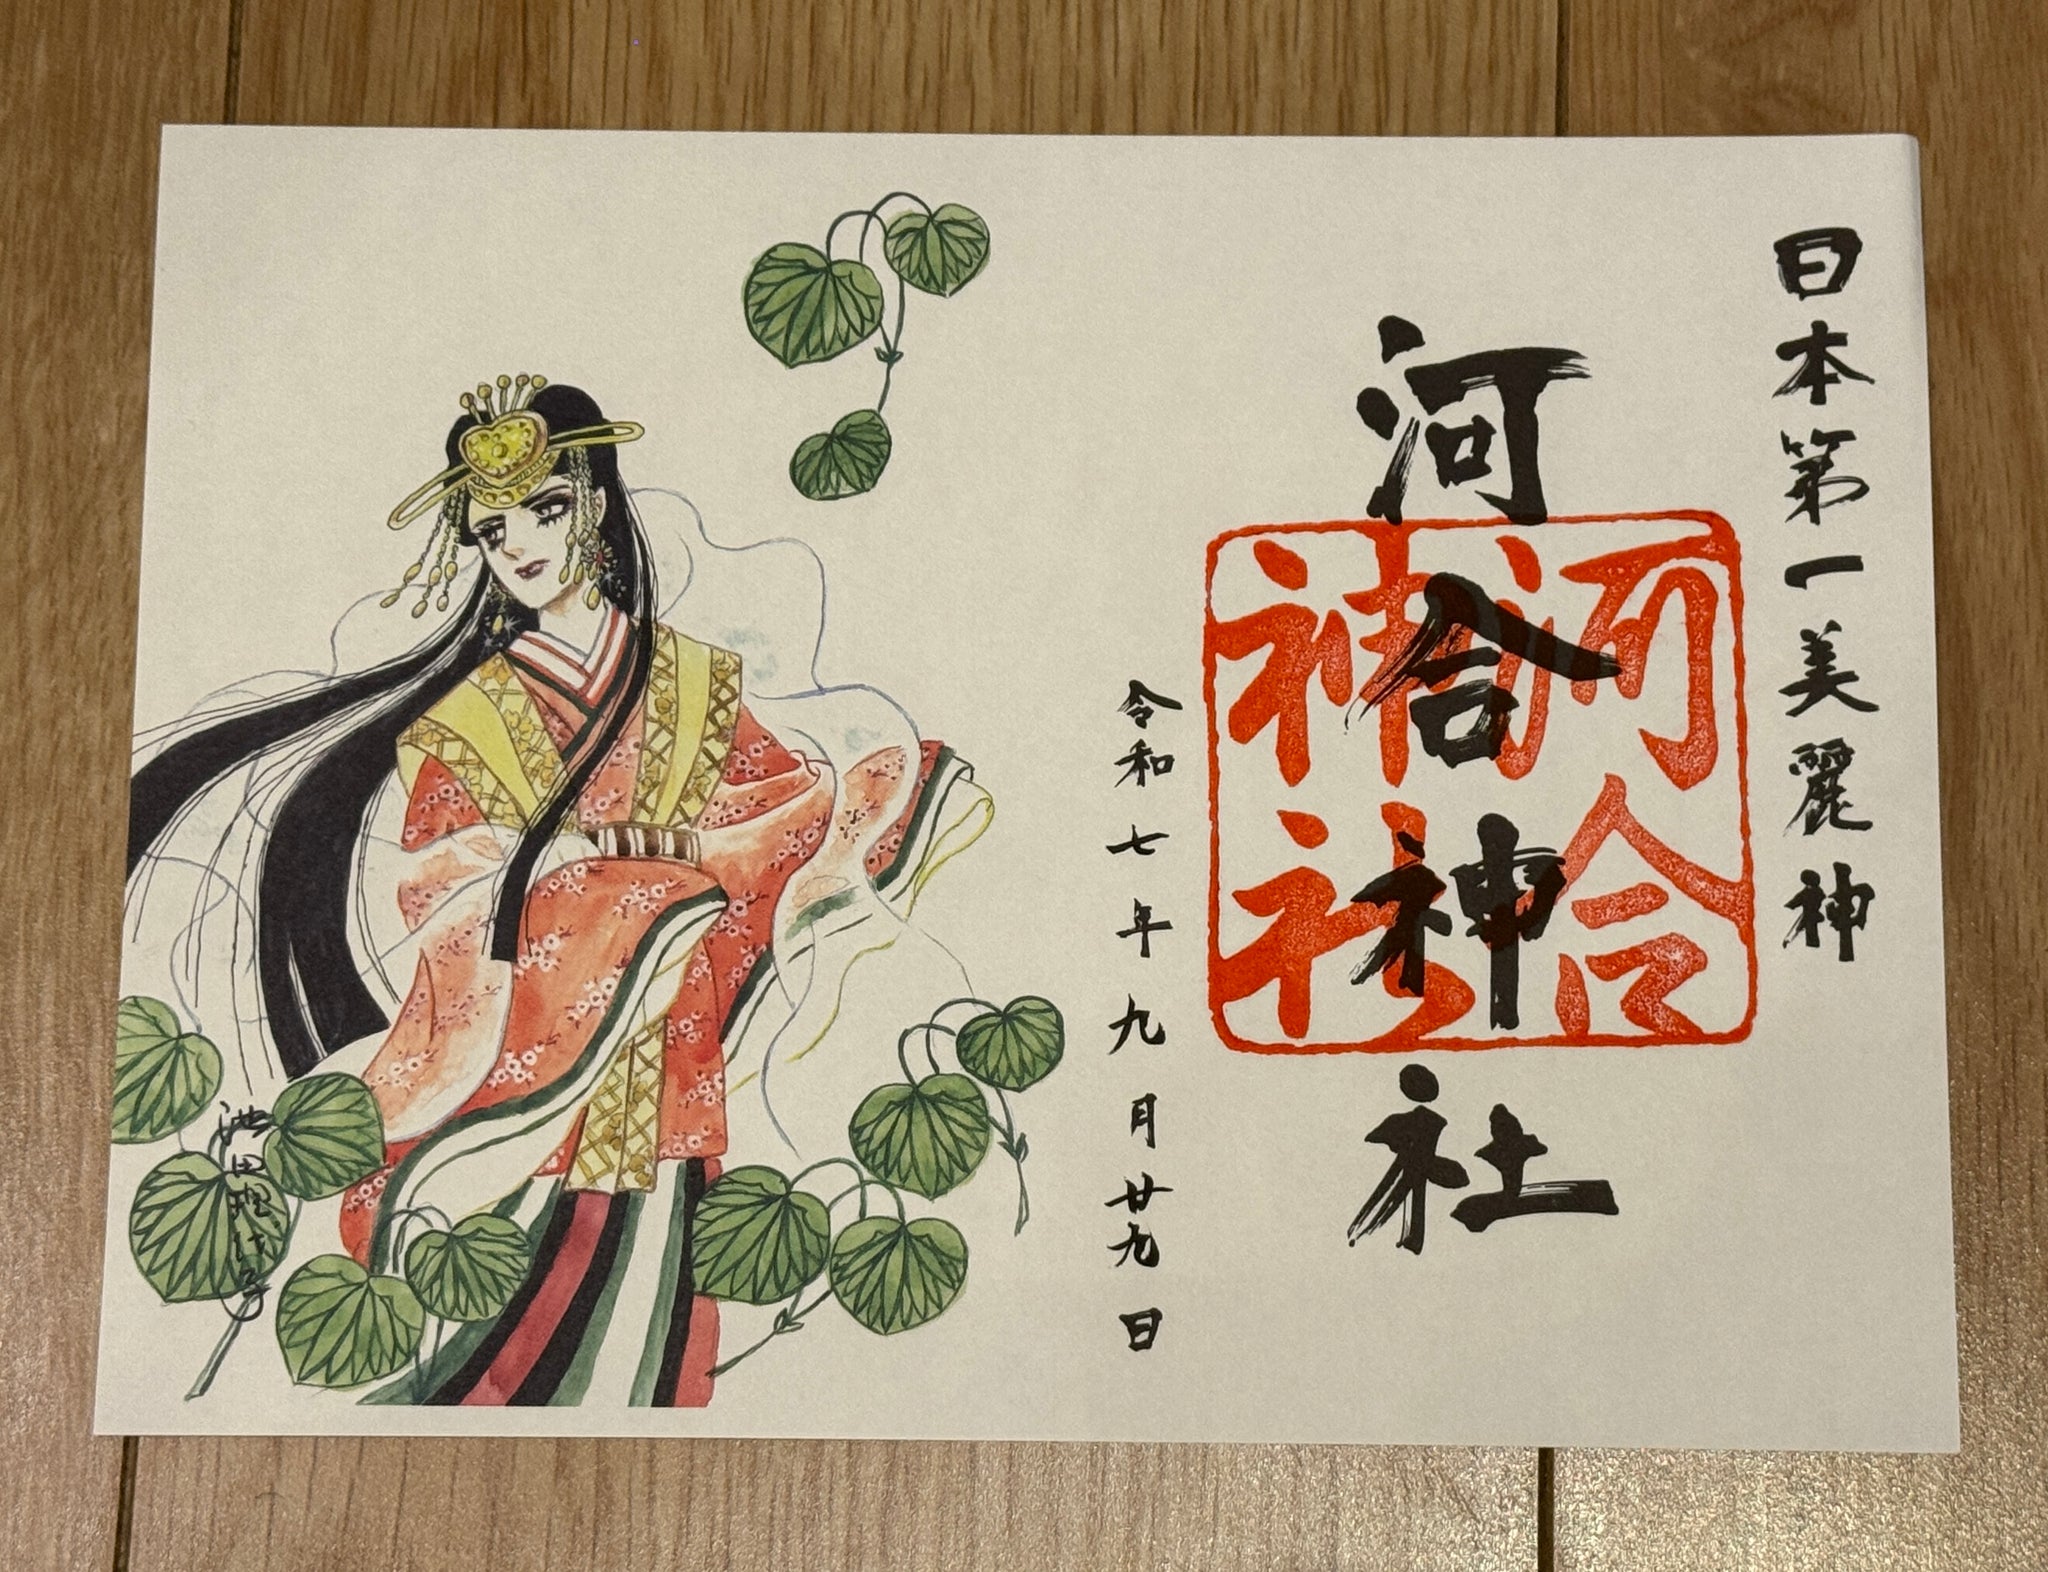 日本第一美麗神
河合神社
河合
神社
令和七年九月廿九日
池田理代子